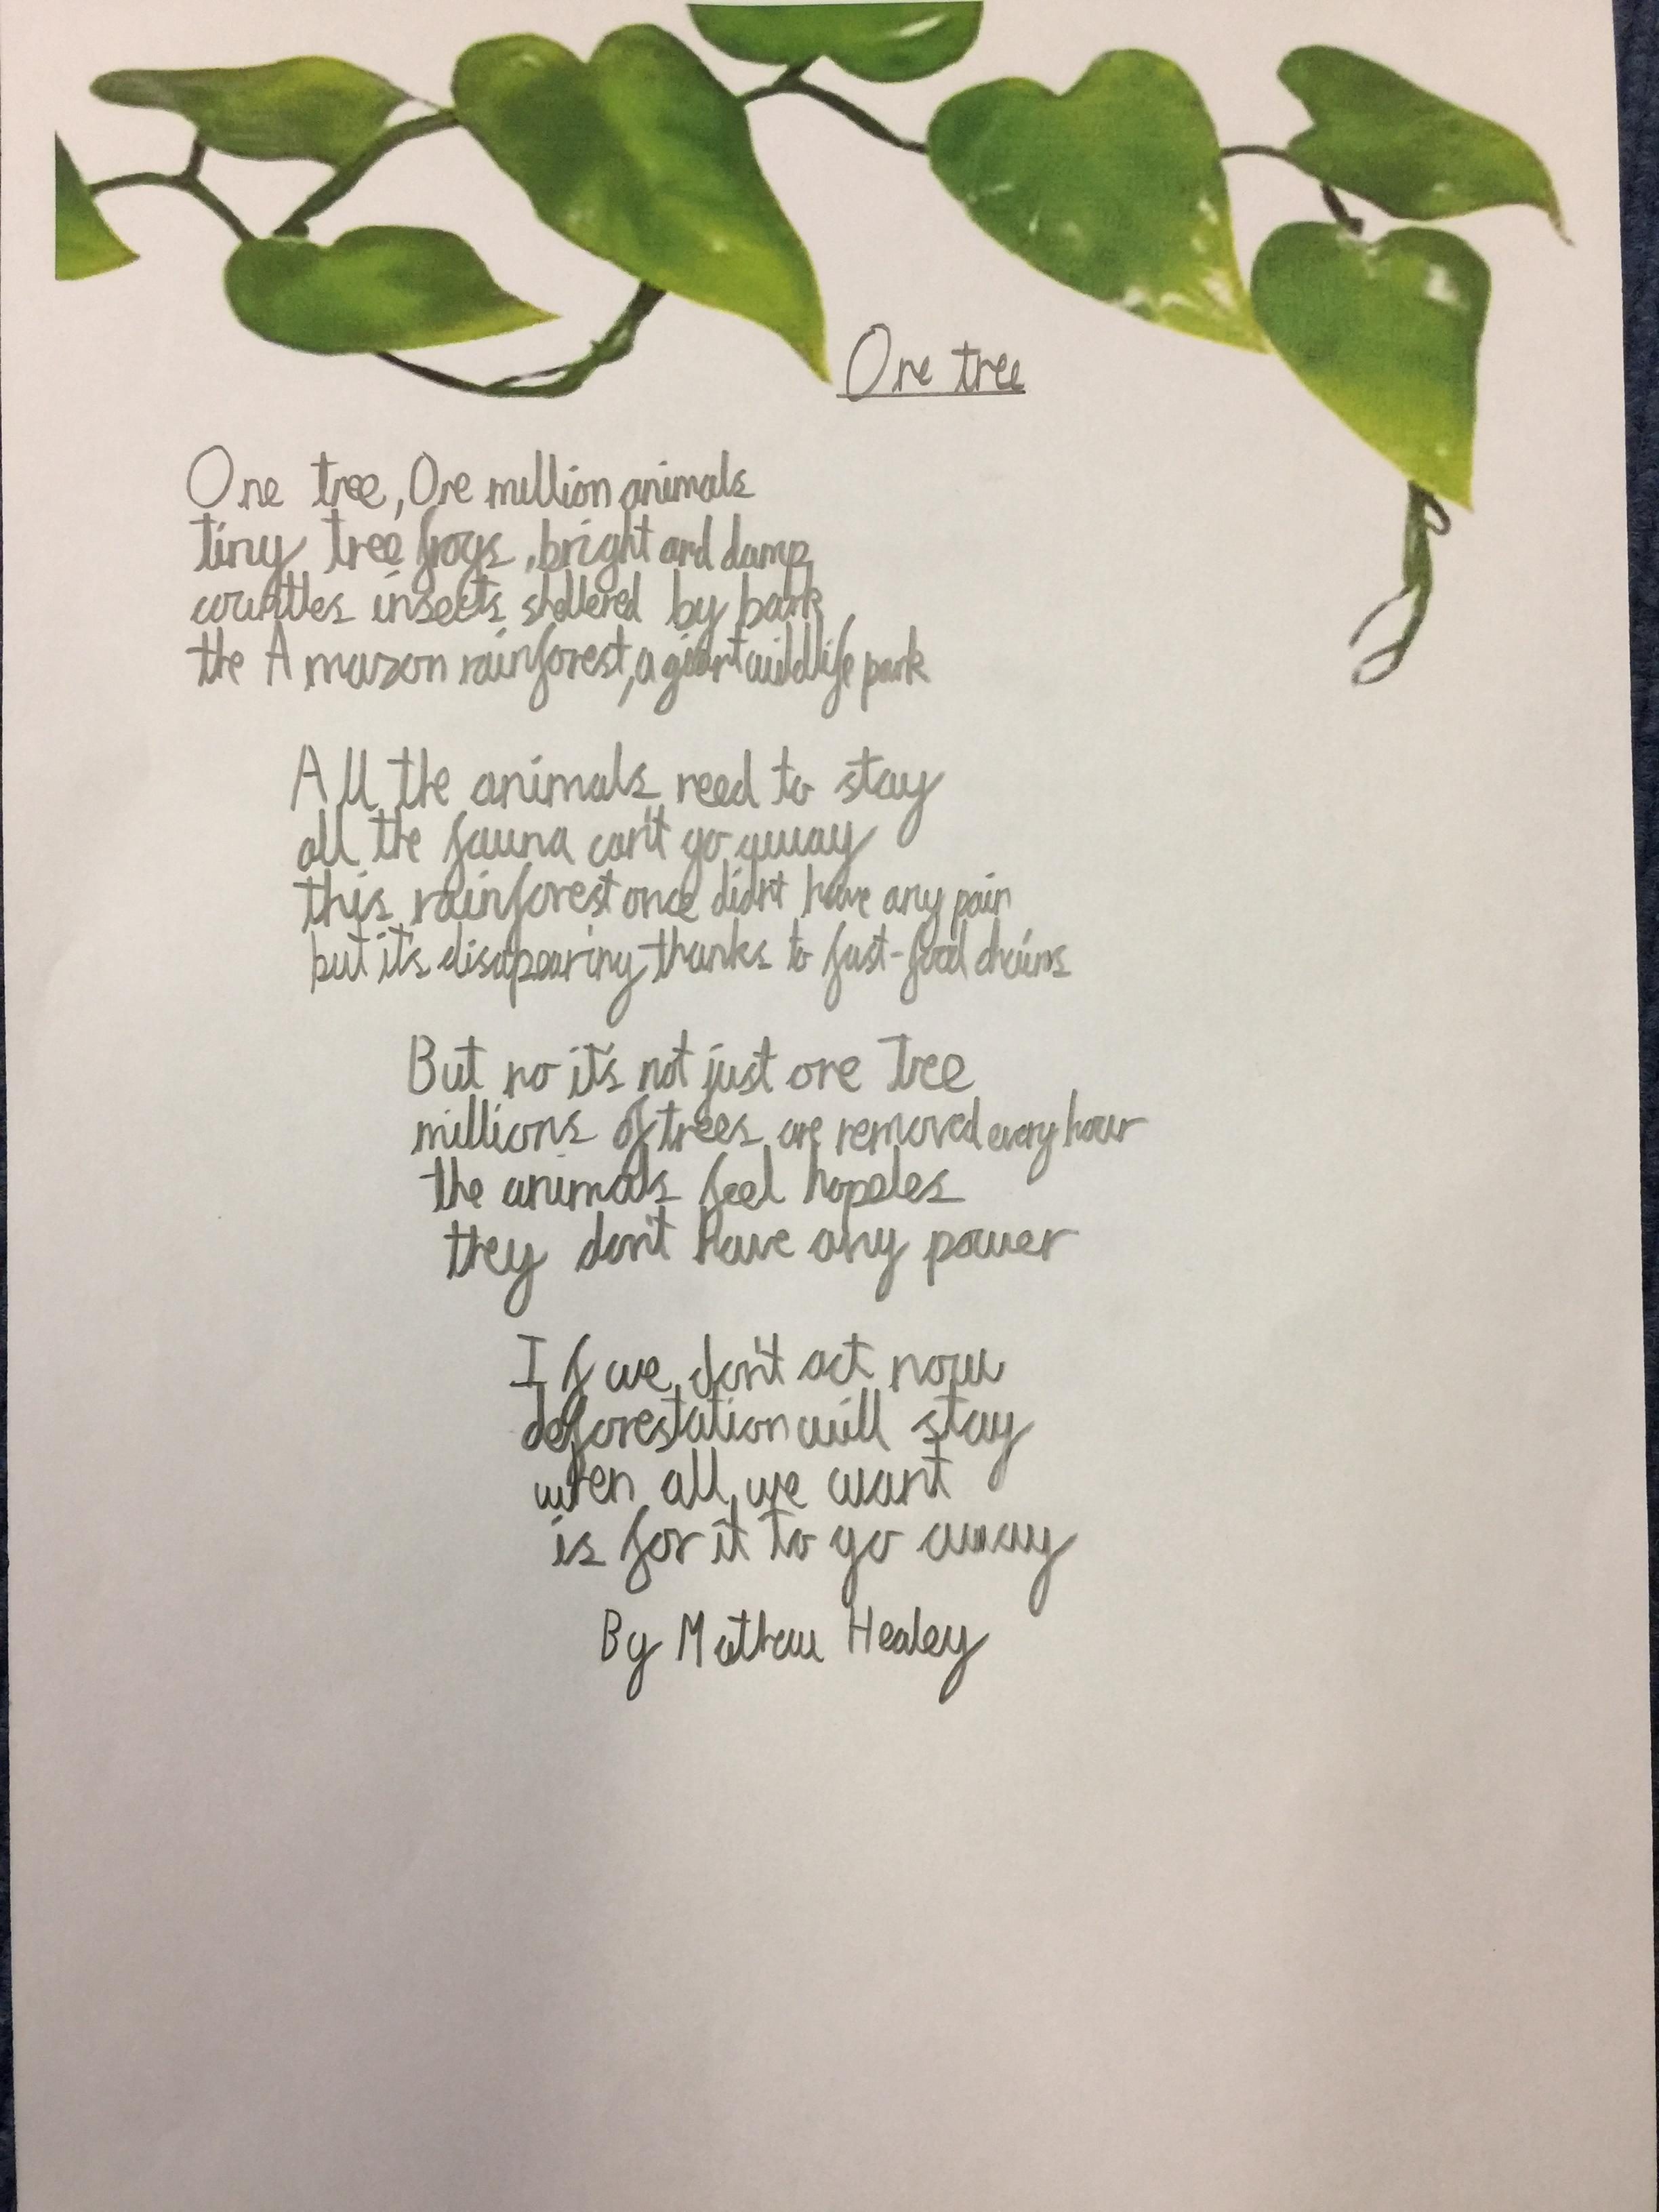 One tree
One tree, One million animals
tiny tree frogs, bright and damp
countles insects sheltered by bark
the Amazon rainforest, a giant wildlife park
All the animals need to stay
all the fauna can't go away
this rainforest once didn't have any pain
but it's disapearing thanks to fast-food chains
But no it's not just one tree
millions of trees are removed every hour
the animals feel hopeles
they don't have any power
If we don't act now
deforestation will stay
when all we want
is for it to go away
By Mathew Healey